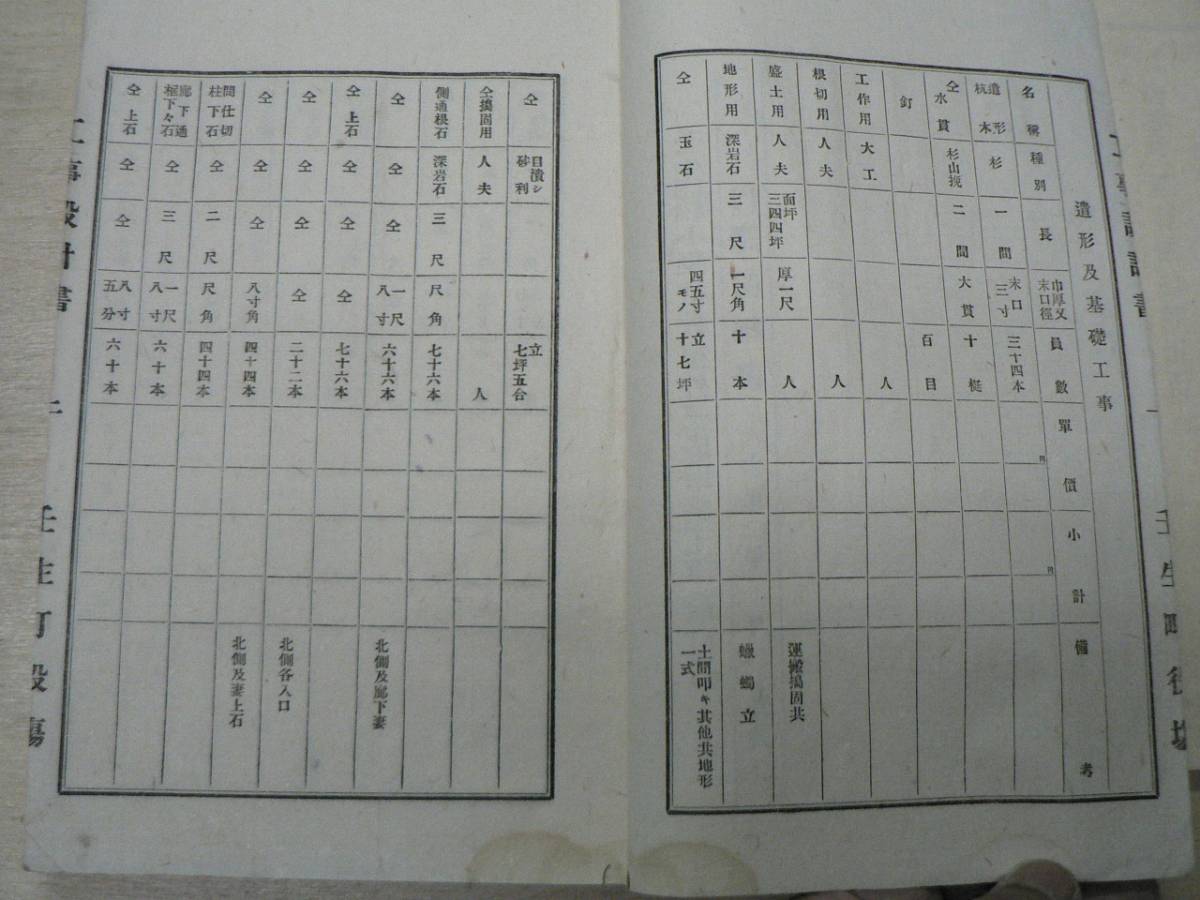 遣形及基礎工事
名稱 種別 長 巾厚又末口徑 員數 單價 小計 備考
遣形杭木 杉 一間 末口三寸 三十四本 円 円
仝水貫 杉山挽 二間 大貫 十梃
釘 百目
工作用 大工 人
根切用 人夫 人
盛土用 人夫 面坪三四四坪 厚一尺 人 運搬搗固共
地形用 深岩石 三尺 一尺角 十本 蠟蠋立
仝 玉石 四五寸モノ 立十七坪 土間叩キ其他共地形一式
仝 目潰シ砂利 立七坪五合
仝搗固用 人夫 人
側通根石 深岩石 三尺 尺角 七十六本
仝 仝 仝 一尺八寸 六十六本 北側及廊下妻
仝上石 仝 仝 仝 七十六本
仝 仝 仝 仝 二十二本 北側各入口
仝 仝 仝 八寸角 四十四本 北側及妻上石
間仕切柱下石 仝 二尺 尺角 四十四本
廊下通框下々石 仝 三尺 一尺八寸 六十本
仝上石 仝 仝 八寸五分 六十本
工事設計書
壬生町役場